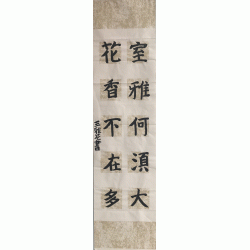 室雅何湏大
花香不在多